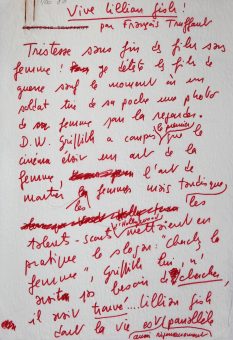 Vive Lillian Gish!
par François Truffaut
Tristesse sans fin de films sans
femme! Je déteste les films de
guerre sauf le moment où un
soldat tire de sa poche une photo
de femme pour la regarder.
D.W. Griffith a compris le premier que le
cinéma était un art de la
femme, l'art de
montrer les femmes mais tandis que
les
talent-scouts d'Hollywood mettaient en
pratique le slogan: "cherchez la
femme", Griffith lui, n'
avait pas besoin de chercher,
il avait trouvé... Lillian Gish
dont la vie est parallèle